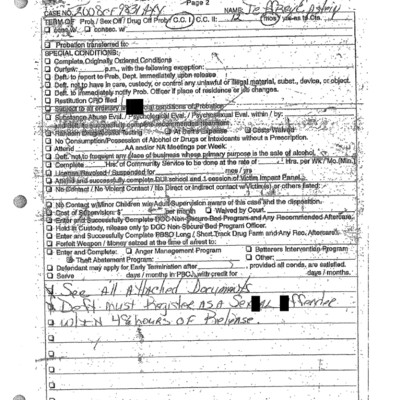 Page 2
CASE NO. 2008CF9381AXX NAME: Jeffrey Epstein
TERM OF Prob / Sex Off / Drug Off Prob / C.C. I / C.C. II:
consec. w/
Probation transferred to:
SPECIAL CONDITIONS:
Complete Originally Ordered Conditions
Curfew p.m., with the following exception:
Deft. to report to Prob. Dept. immediately upon release
Deft. not to have in care, custody, or control any unlawful or illegal material, subst., device, or object.
Deft. to immediately notify Prob. Officer if place of residence or job changes.
Restitution CPO filed
conditions of Probation
Substance Abuse Eval. / Psychological Eval. / Psychosexual Eval. within / by:
and successfully complete any recommended treatment
Random Drug/Alcohol Testing At Deft's Expense Costs Waived
No Consumption/Possession of Alcohol or Drugs or Intoxicants without a Prescription.
Attend AA and/or NA Meetings per Week.
Deft. not to frequent any place of business whose primary purpose is the sale of alcohol.
Complete Hrs. of Community Service to be done at the rate of Hrs. per Wk / Mo. (Min.)
License Revoked / Suspended for mos / yrs
Attend and successfully complete DUI school and 1 session of Victim Impact Panel.
No Contact / No Violent Contact / No Direct or Indirect contact w/Victim(s) or others listed:
No Contact w/Minor Children w/o Adult Supervision aware of this case and the disposition.
Cost of Supervision: $ per month Waived by Court.
Enter and Successfully Complete DOC Non-Secure Bed Program and Any Recommended Aftercare.
Hold in Custody, release only to DOC Non-Secure Bed Program Officer.
Enter and Successfully Complete PBSO Long / Short Track Drug Farm and Any Rec. Aftercare.
Forfeit Weapon / Money seized at the time of arrest to:
Enter and Complete: Anger Management Program Batterers Intervention Program
Theft Abatement Program Other:
Defendant may apply for Early Termination after provided all conds. are satisfied.
Serve days / months in PBCJ, with credit for days / months.
See All Attached Documents
Deft must Register as a Sexual Offender
w/in 48 hours of Release.